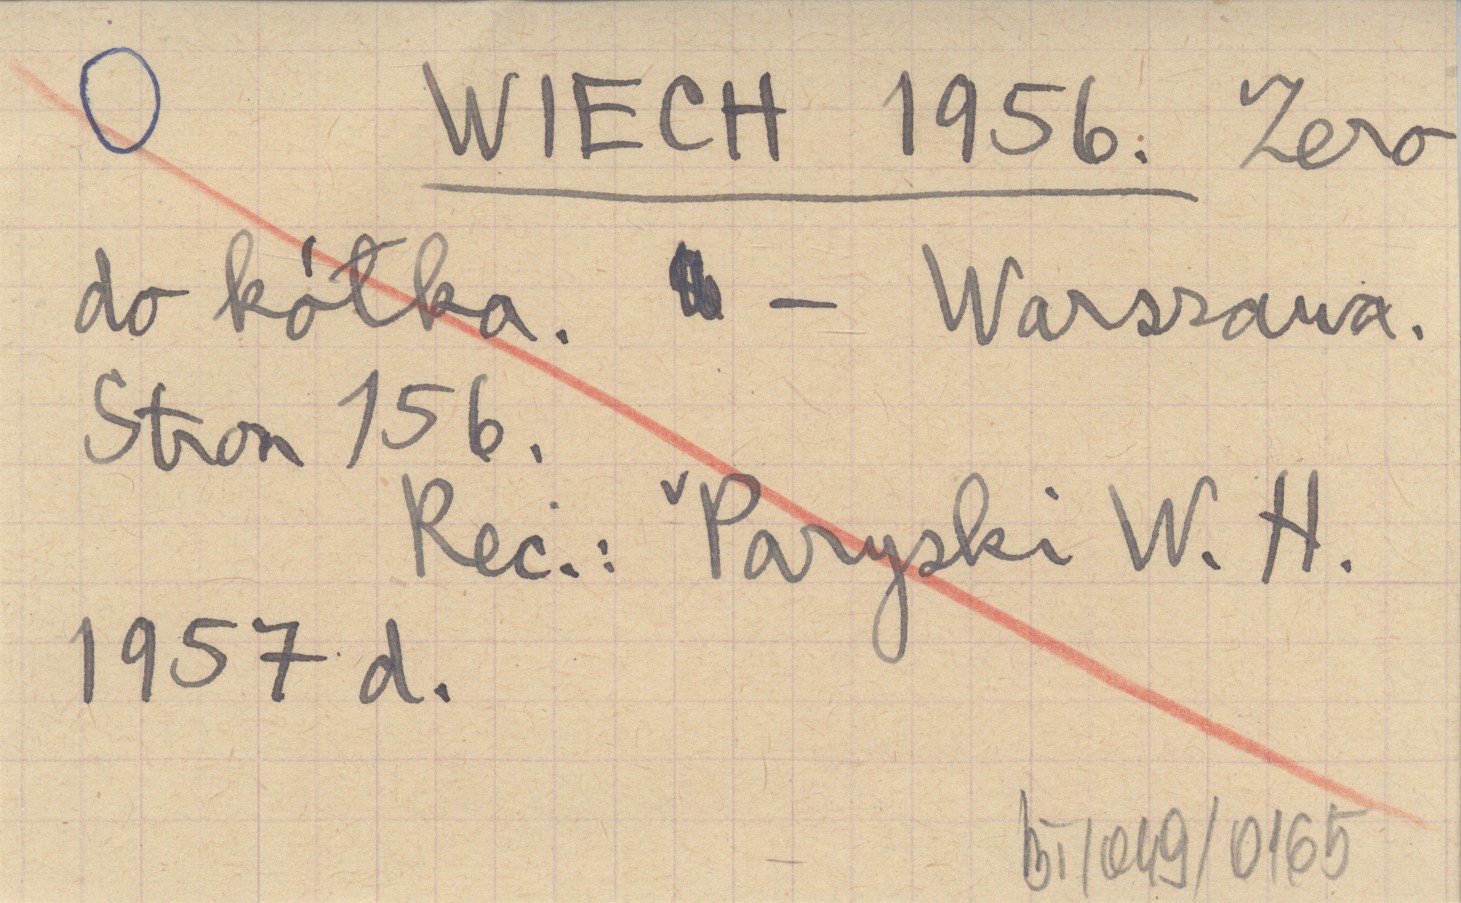 O
WIECH 1956. Zero
do kółka. — Warszawa.
Stron 156.
Rec.: ᵛParyski W. H.
1957 d.
BI/049/0165